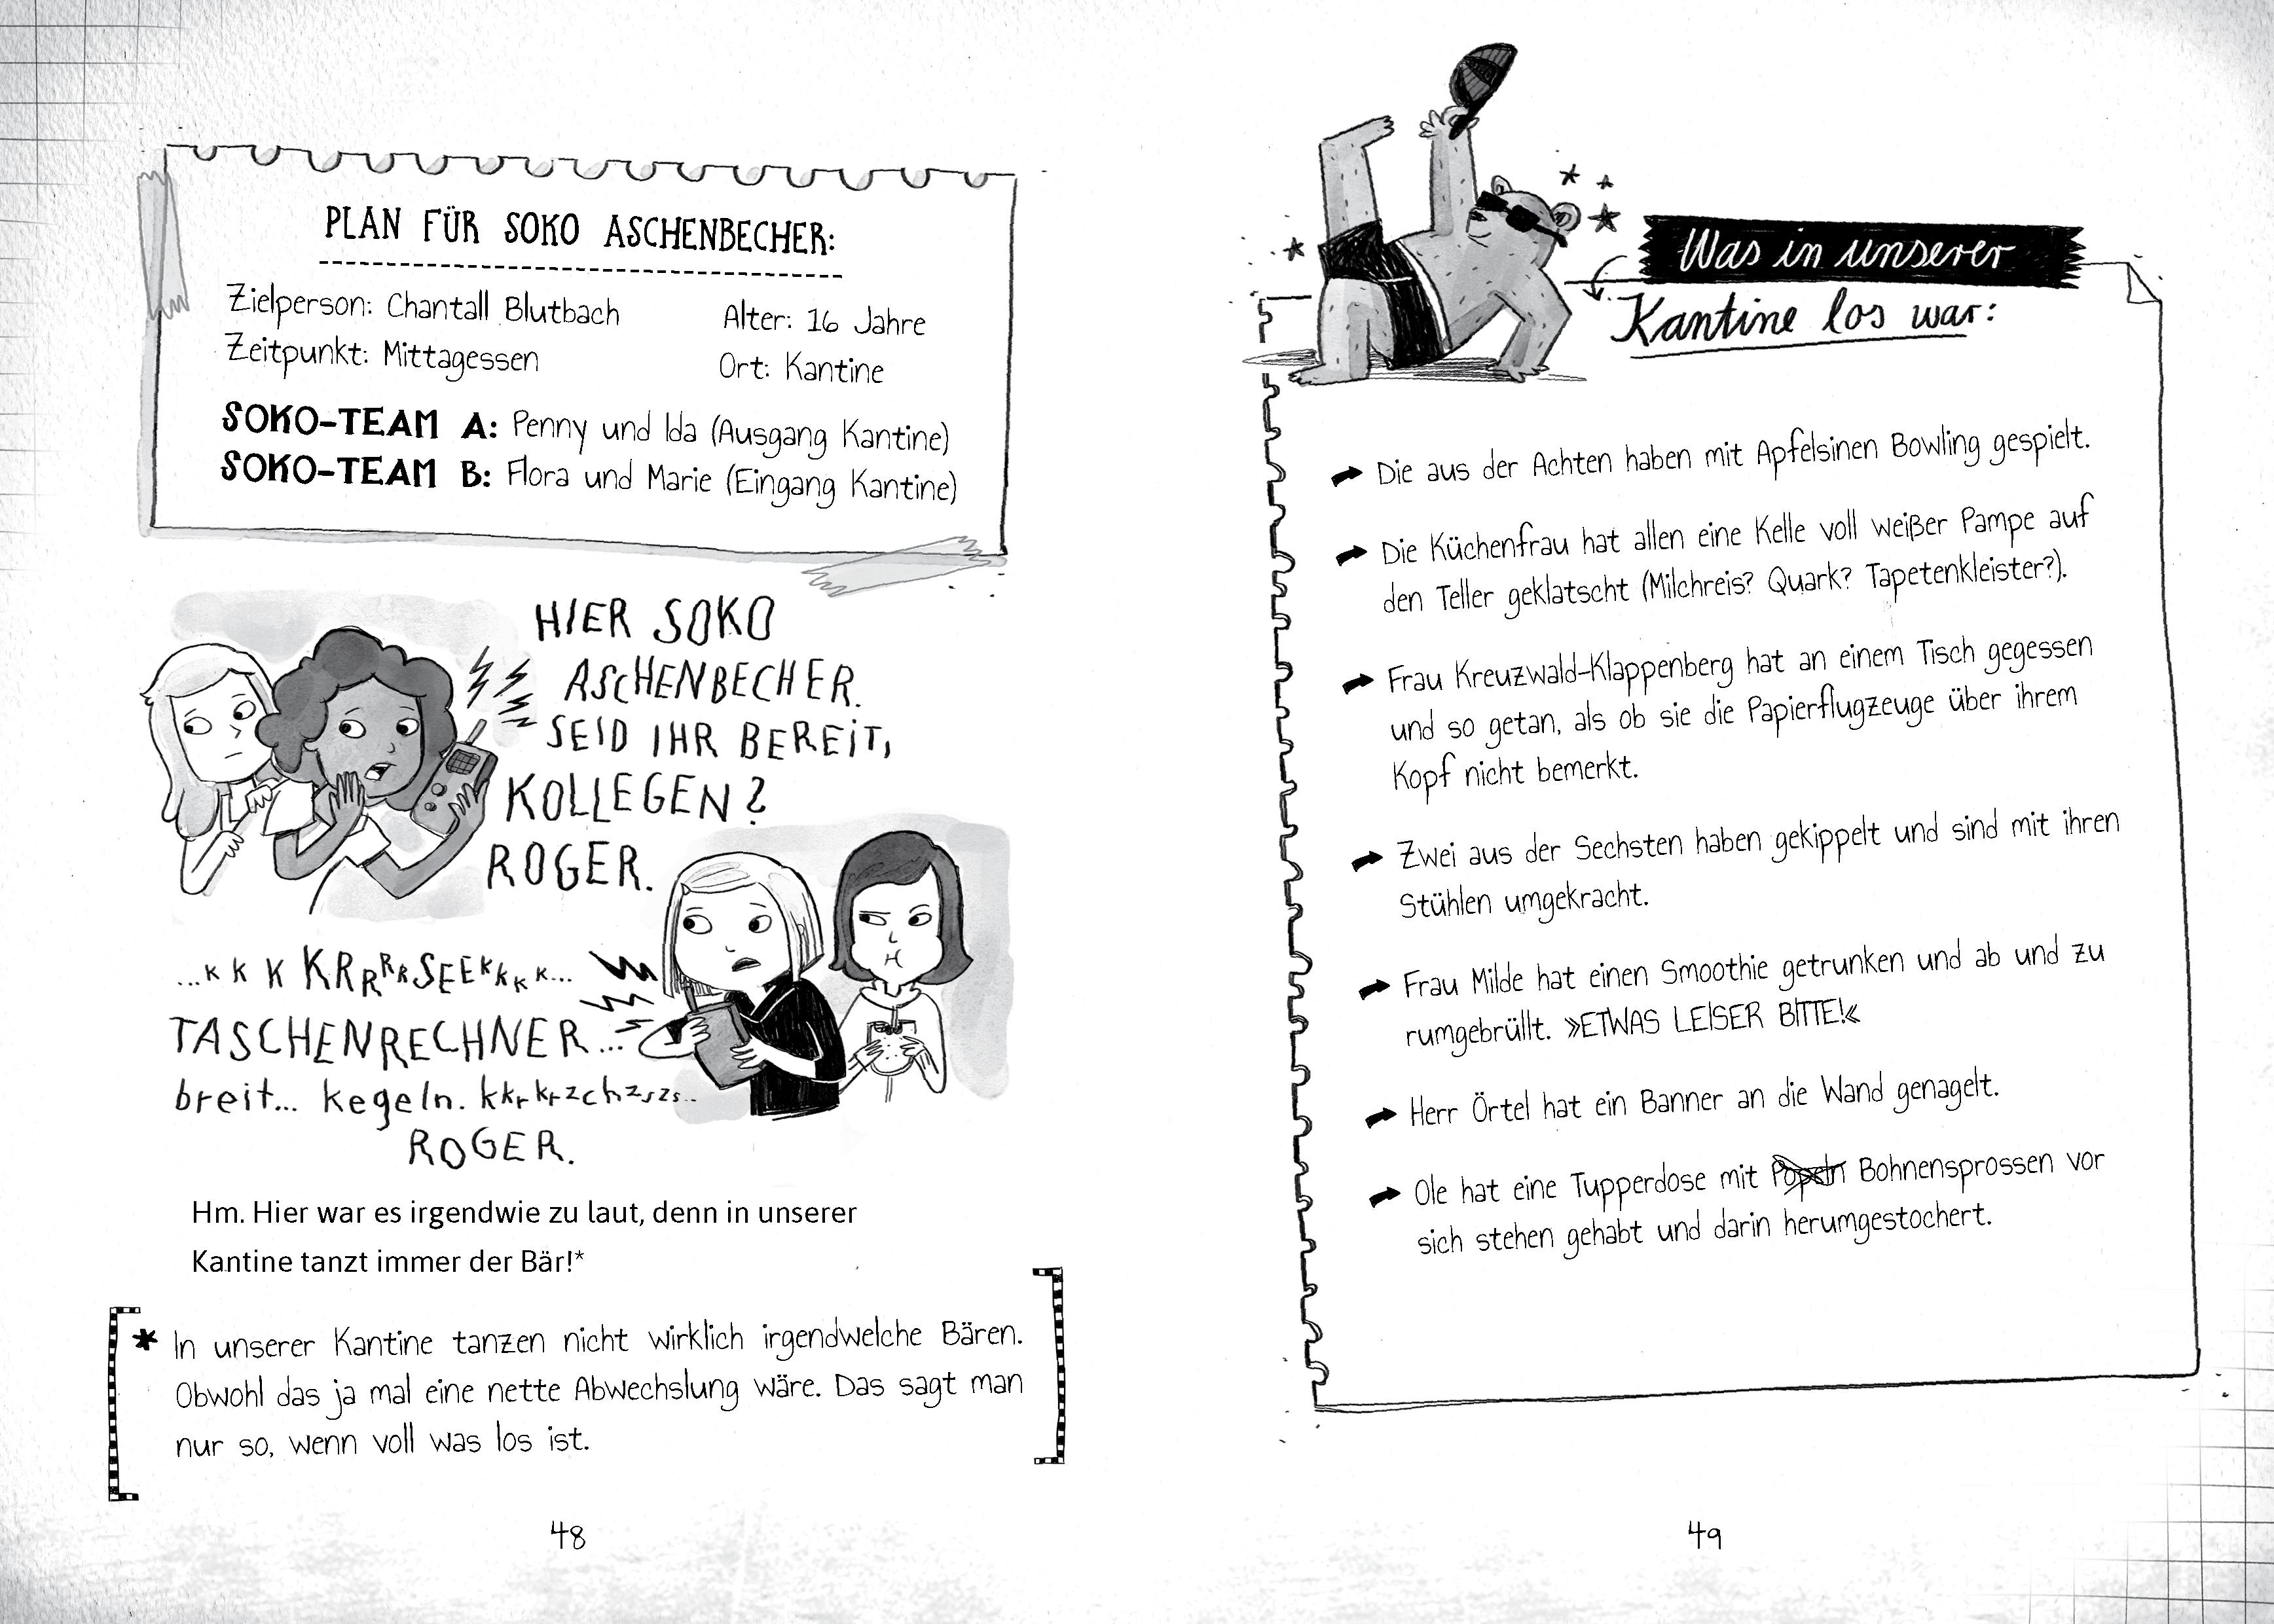 PLAN FÜR SOKO ASCHENBECHER:
Zielperson: Chantall Blutbach
Alter: 16 Jahre
Zeitpunkt: Mittagessen
Ort: Kantine
SOKO-TEAM A: Penny und Ida (Ausgang Kantine)
SOKO-TEAM B: Flora und Marie (Eingang Kantine)
HIER SOKO
ASCHENBECHER.
SEID IHR BEREIT,
KOLLEGEN?
ROGER.
...K K K KRRRRSEEKKKK...
TASCHENRECHNER...
breit... kegeln. kkrkrzchzszs..
ROGER.
Hm. Hier war es irgendwie zu laut, denn in unserer
Kantine tanzt immer der Bär!*
* In unserer Kantine tanzen nicht wirklich irgendwelche Bären.
Obwohl das ja mal eine nette Abwechslung wäre. Das sagt man
nur so, wenn voll was los ist.
48
Was in unserer
Kantine los war:
Die aus der Achten haben mit Apfelsinen Bowling gespielt.
Die Küchenfrau hat allen eine Kelle voll weißer Pampe auf
den Teller geklatscht (Milchreis? Quark? Tapetenkleister?).
Frau Kreuzwald-Klappenberg hat an einem Tisch gegessen
und so getan, als ob sie die Papierflugzeuge über ihrem
Kopf nicht bemerkt.
Zwei aus der Sechsten haben gekippelt und sind mit ihren
Stühlen umgekracht.
Frau Milde hat einen Smoothie getrunken und ab und zu
rumgebrüllt. »ETWAS LEISER BITTE!«
Herr Örtel hat ein Banner an die Wand genagelt.
Ole hat eine Tupperdose mit Popeln Bohnensprossen vor
sich stehen gehabt und darin herumgestochert.
49